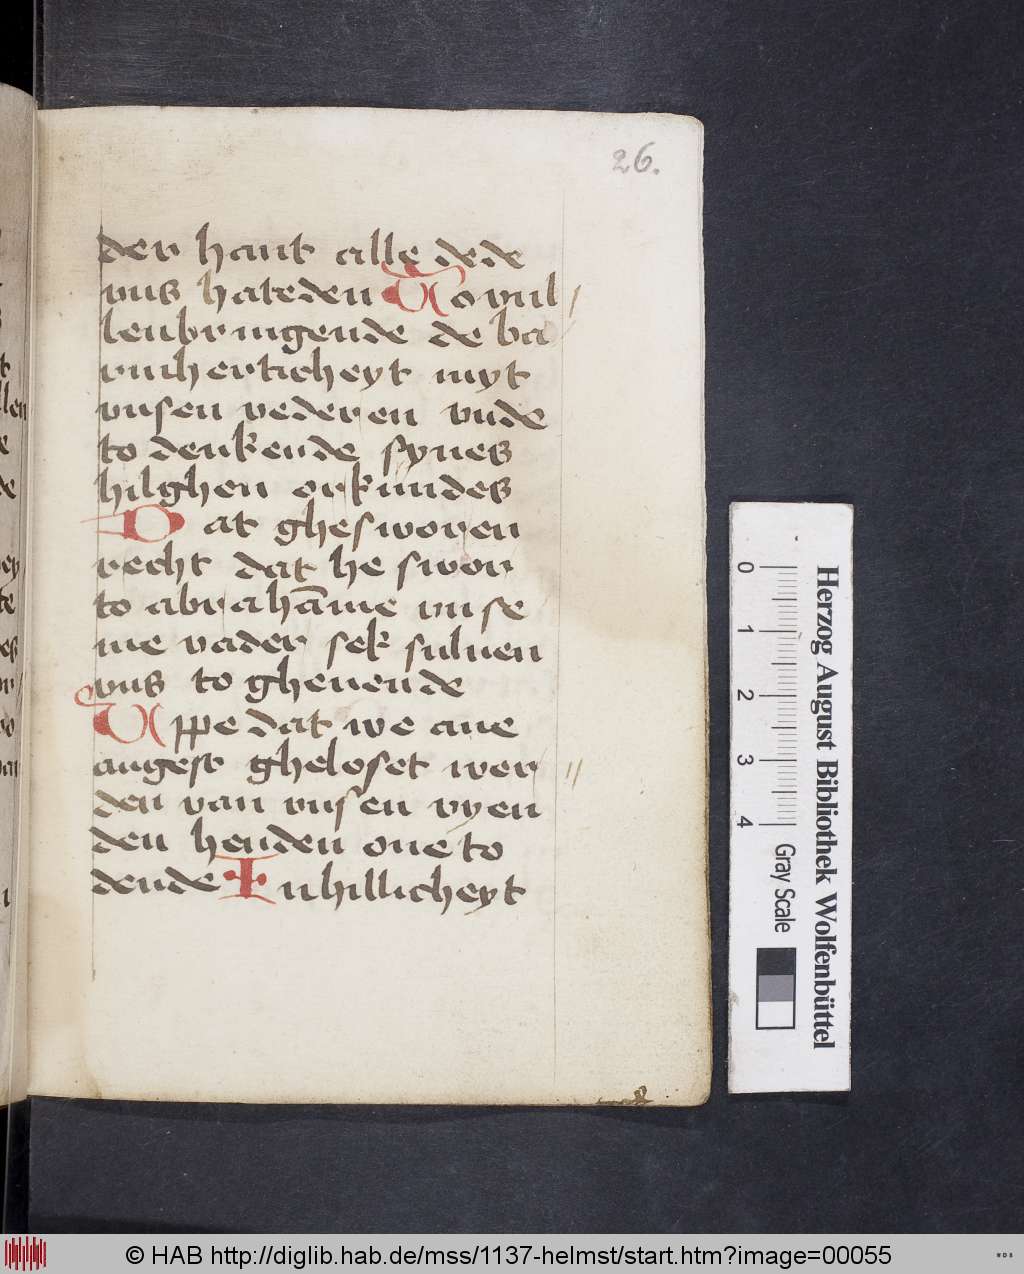 26.
der hant alle de de
vns hateden To vul
lenbringende de ba
rmherticheyt myt
vnsen vederen vnde
to denkende synes
hilghen orkundes
Dat ghesworen
recht dat he swor
to abrahāme vnse
me vader sek suluen
vns to gheuende
Vppe dat we ane
angest gheloset wer
den van vnsen vyen
den henden one to
dende In hillicheyt
0 1 2 3 4
Gray Scale
Herzog August Bibliothek Wolfenbüttel
© HAB http://diglib.hab.de/mss/1137-helmst/start.htm?image=00055